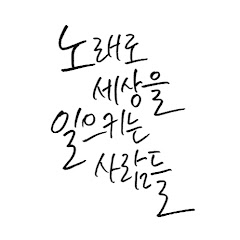 노래로
세상을
일으키는
사람들